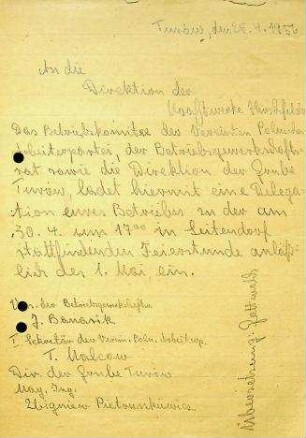 Turów, den 28.4.1956
An die
Direktion der
Kraftwerke Hirschfelde
Das Betriebskomitee der Vereinten Polnischen
Arbeiterpartei, der Betriebsgewerkschafts-
rat sowie die Direktion der Grube
Turów, ladet hiermit eine Delega-
tion eures Betriebes zu der am
30.4. um 17⁰⁰ in Seitendorf
stattfindenden Feierstunde anläß-
lich des 1. Mai ein.
Vors. der Betriebsgewerkschaften
J. Banasik
I Sekretär der Verein. Poln. Arbeiterp.
T. Malcow
Dir. der Grube Turów
Mag. Ing.
Zbigniew
Übersetzung: Gottwald